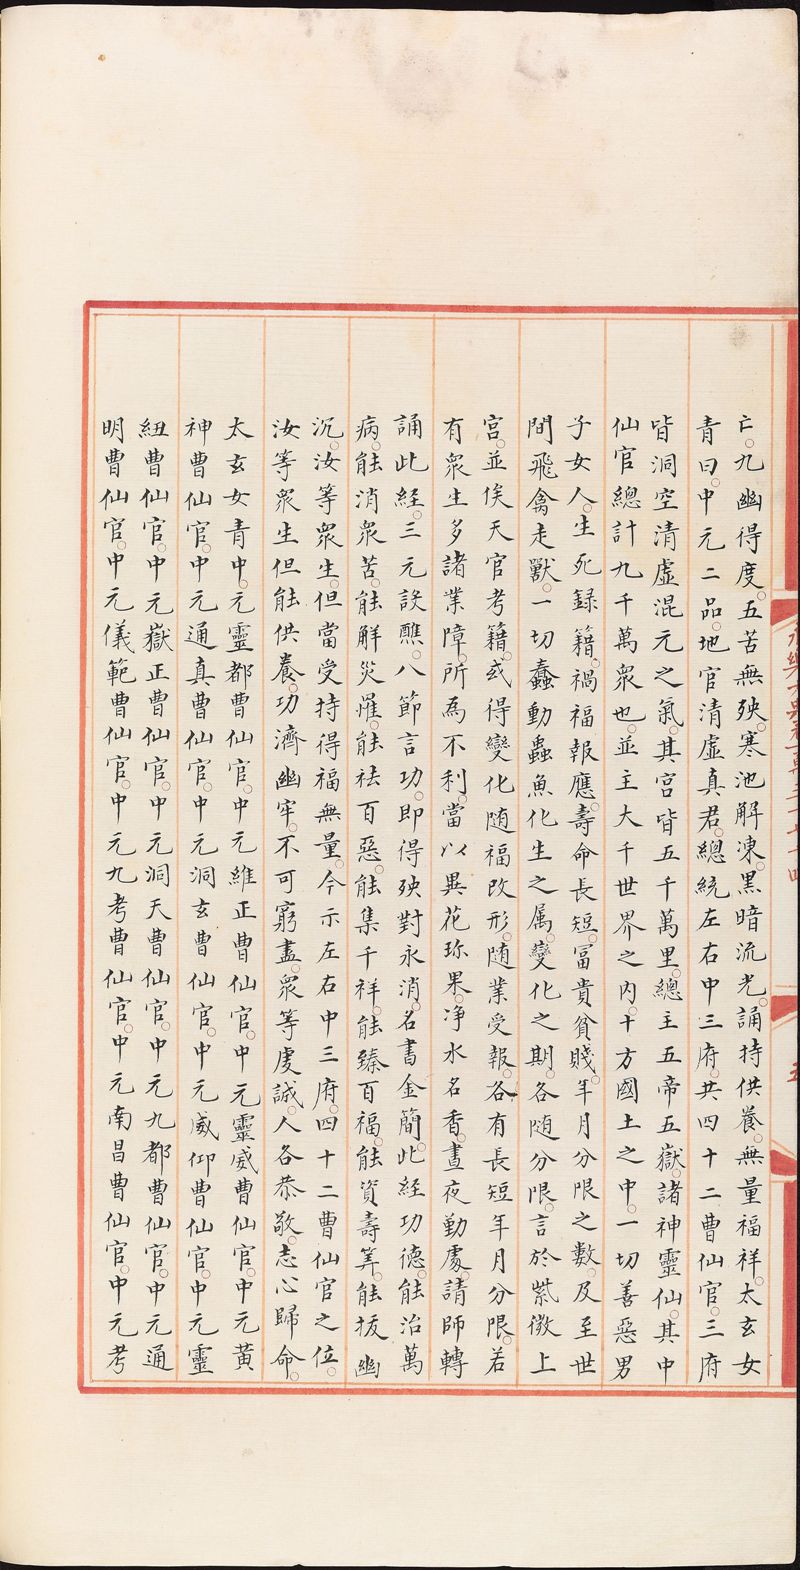 亡。九幽得度。五苦無殃。寒池解凍。黑暗流光。誦持供養。無量福祥。太玄女
青曰。中元二品。地官清虛真君。總統左右中三府。共四十二曹仙官。三府
皆洞空清虛混元之氣。其宮皆五千萬里。總主五帝五嶽。諸神靈仙。其中
仙官總計九千萬衆也。並主大千世界之内。十方國土之中。一切善惡男
子女人。生死録籍。禍福報應。壽命長短。冨貴貧賤。年月分限之數。及至世
間飛禽走獸。一切蠢動蟲魚化生之属。變化之期。各随分限。言於紫微上
宮。並俟天官考籍。或得變化随福改形。随業受報。各有長短年月分限。若
有衆生多諸業障。所為不利。當以異花珎果。凈水名香。晝夜勤處。請師轉
誦此経。三元設醮。八節言功。即得殃對永消。名書金簡。此経功德。能治萬
病。能消衆苦。能解災罹。能祛百惡。能集千祥。能臻百福。能資壽筭。能拔幽
沉。汝等衆生。但當受持得福無量。今示左右中三府。四十二曹仙官之位。
汝等衆生但能供養。功濟幽牢。不可窮盡。衆等虔誠。人各恭敬。志心歸命。
太玄女青中。元靈都曹仙官。中元維正曹仙官。中元靈威曹仙官。中元黄
神曹仙官。中元通真曹仙官。中元洞玄曹仙官。中元威仰曹仙官。中元靈
紐曹仙官。中元嶽正曹仙官。中元洞天曹仙官。中元九都曹仙官。中元通
明曹仙官。中元儀範曹仙官。中元九考曹仙官。中元南昌曹仙官。中元考